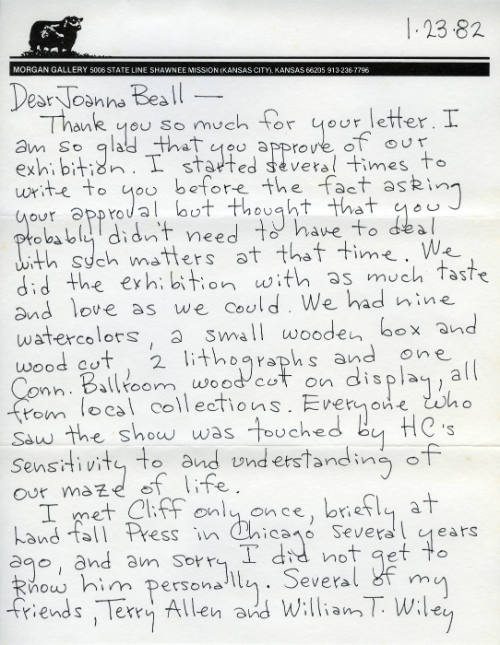 1·23·82
MORGAN GALLERY 5006 STATE LINE SHAWNEE MISSION (KANSAS CITY), KANSAS 66205 913-236-7796
Dear Joanna Beall —
Thank you so much for your letter. I
am so glad that you approve of our
exhibition. I started several times to
write to you before the fact asking
your approval but thought that you
probably didn't need to have to deal
with such matters at that time. We
did the exhibition with as much taste
and love as we could. We had nine
watercolors, a small wooden box and
wood cut, 2 lithographs and one
Conn. Ballroom wood cut on display, all
from local collections. Everyone who
saw the show was touched by HC's
sensitivity to and understanding of
our maze of life.
I met Cliff only once, briefly at
Land fall Press in Chicago several years
ago, and am sorry I did not get to
know him personally. Several of my
friends, Terry Allen and William T. Wiley